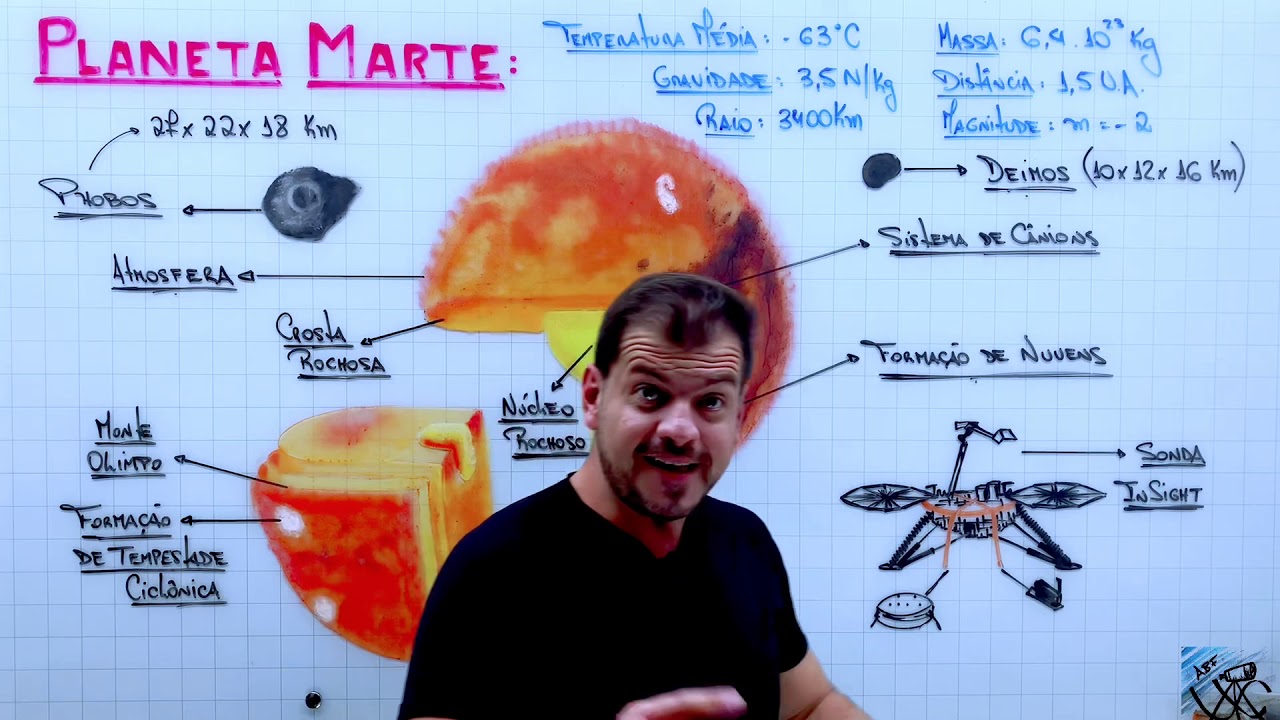 PLANETA MARTE:
TEMPERATURA MÉDIA: -63°C
GRAVIDADE: 3,5 N/Kg
RAIO: 3400Km
MASSA: 6,4.10²³ Kg
DISTÂNCIA: 1,5 U.A.
MAGNITUDE: m = -2
27 x 22 x 18 Km
PHOBOS
DEIMOS (10 x 12 x 16 Km)
ATMOSFERA
SISTEMA DE CÂNIONS
CROSTA
ROCHOSA
FORMAÇÃO DE NUVENS
NÚCLEO
ROCHOSO
MONTE
OLIMPO
FORMAÇÃO
DE TEMPESTADE
CICLÔNICA
SONDA
INSIGHT
ABF